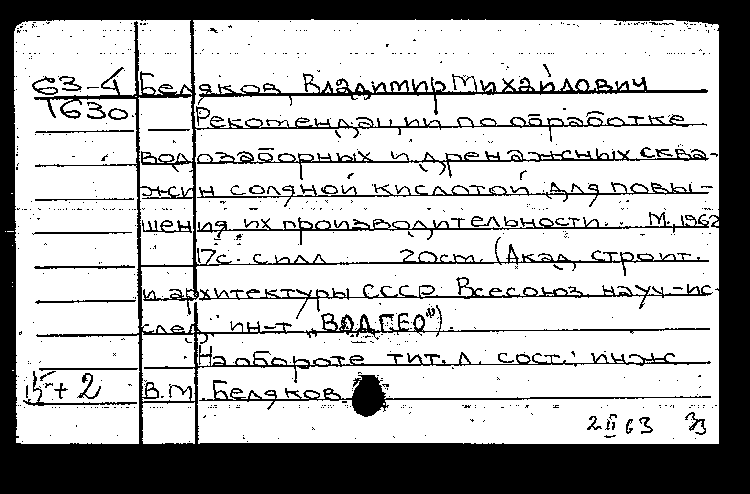 63-4 Беляков, Владимир Михайлович
1630 Рекомендации по обработке
водозаборных и дренажных сква-
жин соляной кислотой для повы-
шения их производительности. М., 1962
17с. с илл 20см. (Акад. строит.
и архитектуры СССР Всесоюз. науч-ис-
след. ин-т "ВОДГЕО").
На обороте тит. л. сост.: инж
15+2 В.М. Беляков
2 II 63